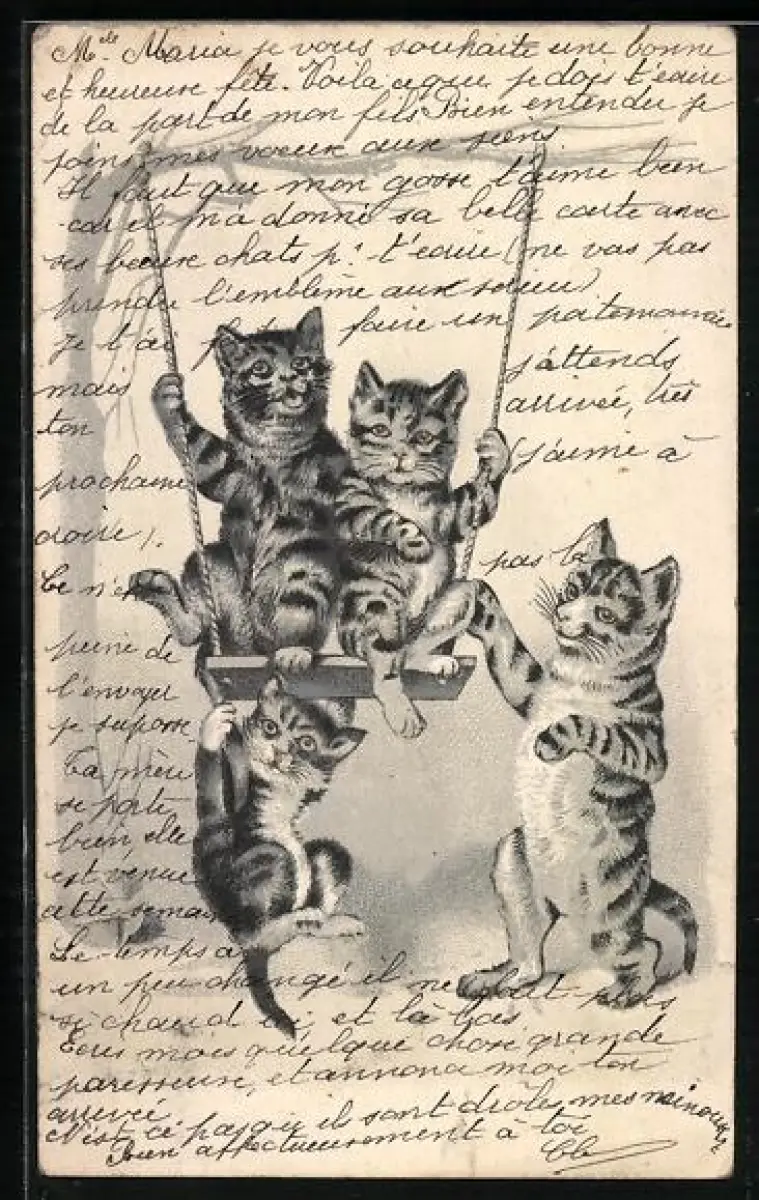 Mlle Maria je vous souhaite une bonne
et heureuse fête. Voilà ce que je dois t'écrire
de la part de mon fils Bien entendu je
joins mes voeux aux siens
Il faut que mon gosse t'aime bien
car il m'a donné sa belle carte avec
ses beaux chats pr t'écrire (ne vas pas
prendre l'emblème aux sérieux)
Je t'ai faire un
mais j'attends
ton arrivée, très
prochaine (j'aime à
croire).
Ce n'est pas la
peine de
l'envoyer
je suppose
Ta mère
se porte
bien, elle
est venue
cette semaine
Le temps a
un peu changé il ne fait plus
si chaud ici et là bas
Ecris mois quelque chose grande
paresseuse, et annonce moi ton
arrivée
N'est ce pas qu'ils sont drôles mes minous
Bien affectueusement à toi